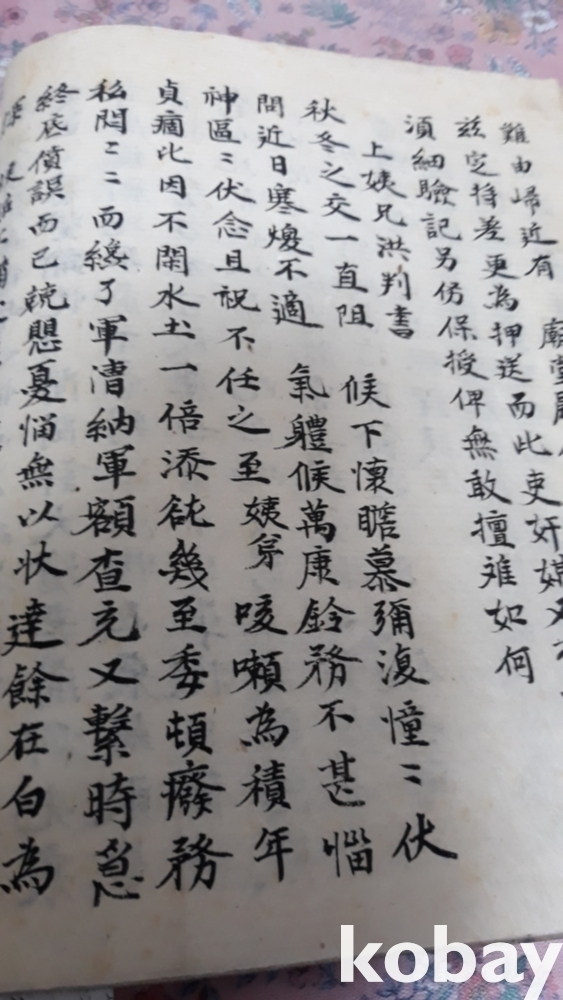 難由歸近有 廟堂
茲定持差更為押送而此吏奸
湏細驗記另仿保授俾無敢擅雖如何
上姨兄洪判書
秋冬之交一直阻 候下懷瞻慕彌復憧〻伏
問近日寒煖不適 氣體候萬康鈴務不甚惱
神區〻伏念且祝不任之至姨弟咳嗽為積年
貞痼比因不閑水土一倍添龥幾至委頓癈務
私悶〻〻而纔了軍漕納軍額查充又繫時急
終底僨誤而已兢懸憂惱無以狀達餘在白為
kobay